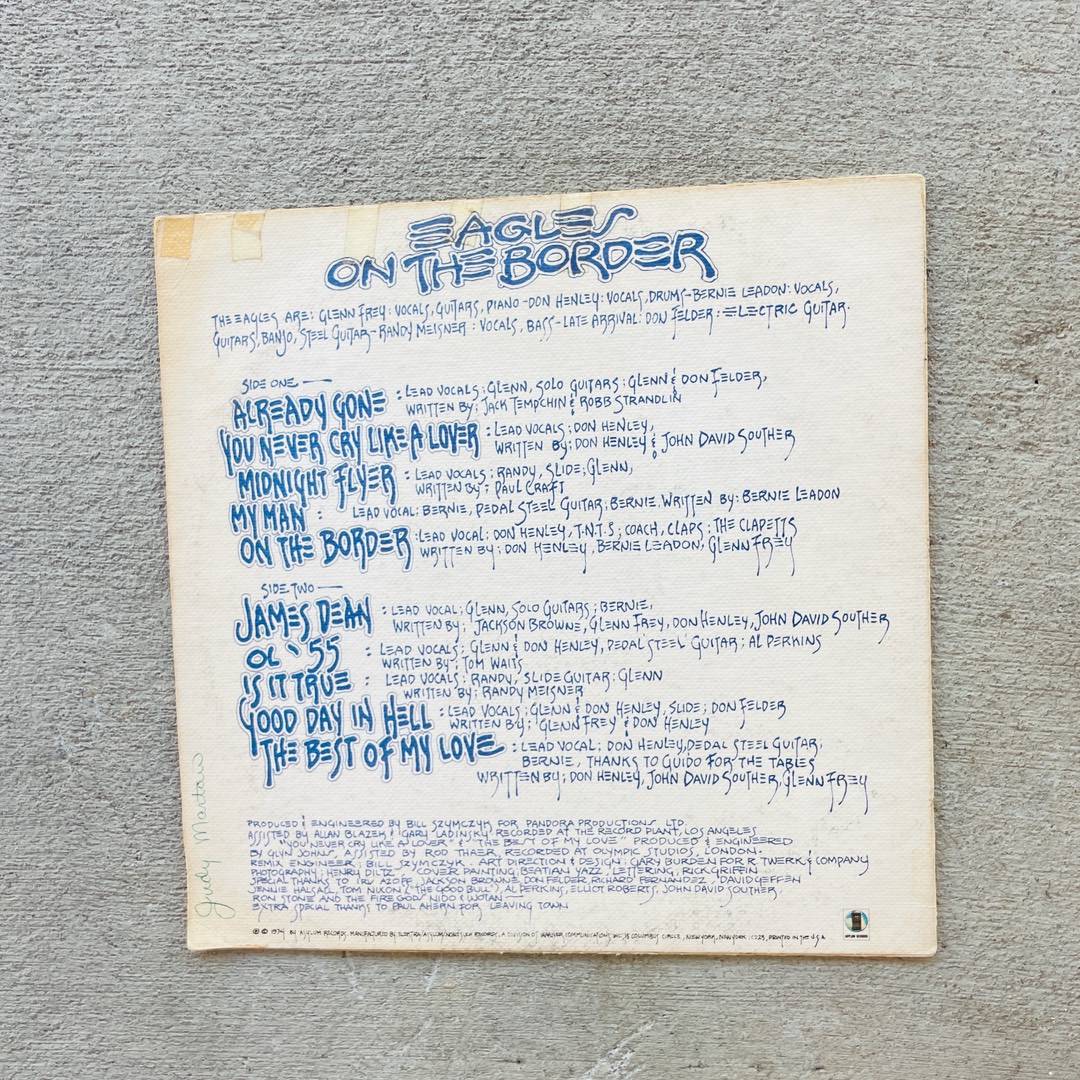 EAGLES
ON THE BORDER
THE EAGLES ARE: GLENN FREY: VOCALS, GUITARS, PIANO - DON HENLEY: VOCALS, DRUMS - BERNIE LEADON: VOCALS,
GUITARS, BANJO, STEEL GUITAR - RANDY MEISNER: VOCALS, BASS - LATE ARRIVAL: DON FELDER: ELECTRIC GUITAR.
SIDE ONE —
ALREADY GONE : LEAD VOCALS; GLENN, SOLO GUITARS; GLENN & DON FELDER,
WRITTEN BY: JACK TEMPCHIN & ROBB STRANDLIN
YOU NEVER CRY LIKE A LOVER : LEAD VOCALS; DON HENLEY,
WRITTEN BY; DON HENLEY & JOHN DAVID SOUTHER
MIDNIGHT FLYER : LEAD VOCALS; RANDY, SLIDE; GLENN,
WRITTEN BY; PAUL CRAFT
MY MAN : LEAD VOCAL: BERNIE, PEDAL STEEL GUITAR; BERNIE. WRITTEN BY: BERNIE LEADON
ON THE BORDER : LEAD VOCAL: DON HENLEY, T.N.T.S; COACH, CLAPS; THE CLAPETTS
WRITTEN BY; DON HENLEY, BERNIE LEADON, GLENN FREY
SIDE TWO —
JAMES DEAN : LEAD VOCAL; GLENN, SOLO GUITARS; BERNIE,
WRITTEN BY; JACKSON BROWNE, GLENN FREY, DON HENLEY, JOHN DAVID SOUTHER
OL' 55 : LEAD VOCALS; GLENN & DON HENLEY, PEDAL STEEL GUITAR; AL PERKINS
WRITTEN BY; TOM WAITS
IS IT TRUE : LEAD VOCALS; RANDY, SLIDE GUITAR: GLENN
WRITTEN BY; RANDY MEISNER
GOOD DAY IN HELL : LEAD VOCALS; GLENN & DON HENLEY, SLIDE; DON FELDER
WRITTEN BY; GLENN FREY & DON HENLEY
THE BEST OF MY LOVE : LEAD VOCAL; DON HENLEY, PEDAL STEEL GUITAR;
BERNIE, THANKS TO GUIDO FOR THE TABLES
WRITTEN BY; DON HENLEY, JOHN DAVID SOUTHER, GLENN FREY
PRODUCED & ENGINEERED BY BILL SZYMCZYK FOR PANDORA PRODUCTIONS LTD.
ASSISTED BY ALLAN BLAZEK & GARY LADINSKY RECORDED AT THE RECORD PLANT, LOS ANGELES
"YOU NEVER CRY LIKE A LOVER" & "THE BEST OF MY LOVE" PRODUCED & ENGINEERED
BY GLYN JOHNS, ASSISTED BY ROD THAER, RECORDED AT OLYMPIC STUDIOS, LONDON.
REMIX ENGINEER: BILL SZYMCZYK. ART DIRECTION & DESIGN: GARY BURDEN FOR R. TWERK & COMPANY
PHOTOGRAPHY: HENRY DILTZ, COVER PAINTING, BEATIAN YAZZ, LETTERING, RICK GRIFFIN
SPECIAL THANKS TO IRV AZOFF, JACKSON BROWNE, DON FELDER, RICHARD FERNANDEZ, DAVID GEFFEN
JENNIE HALSALL, TOM NIXON ("THE GOOD BULL"), AL PERKINS, ELLIOT ROBERTS, JOHN DAVID SOUTHER,
RON STONE AND THE FIRE GOD, NIDO & WOTAN
EXTRA SPECIAL THANKS TO PAUL AHERN FOR LEAVING TOWN
© ℗ 1974 BY ASYLUM RECORDS. MANUFACTURED BY ELEKTRA/ASYLUM/NONESUCH RECORDS, A DIVISION OF WARNER COMMUNICATIONS INC. 15 COLUMBUS CIRCLE, NEW YORK, NEW YORK, 10023, PRINTED IN THE U.S.A.
ASYLUM RECORDS
Judy